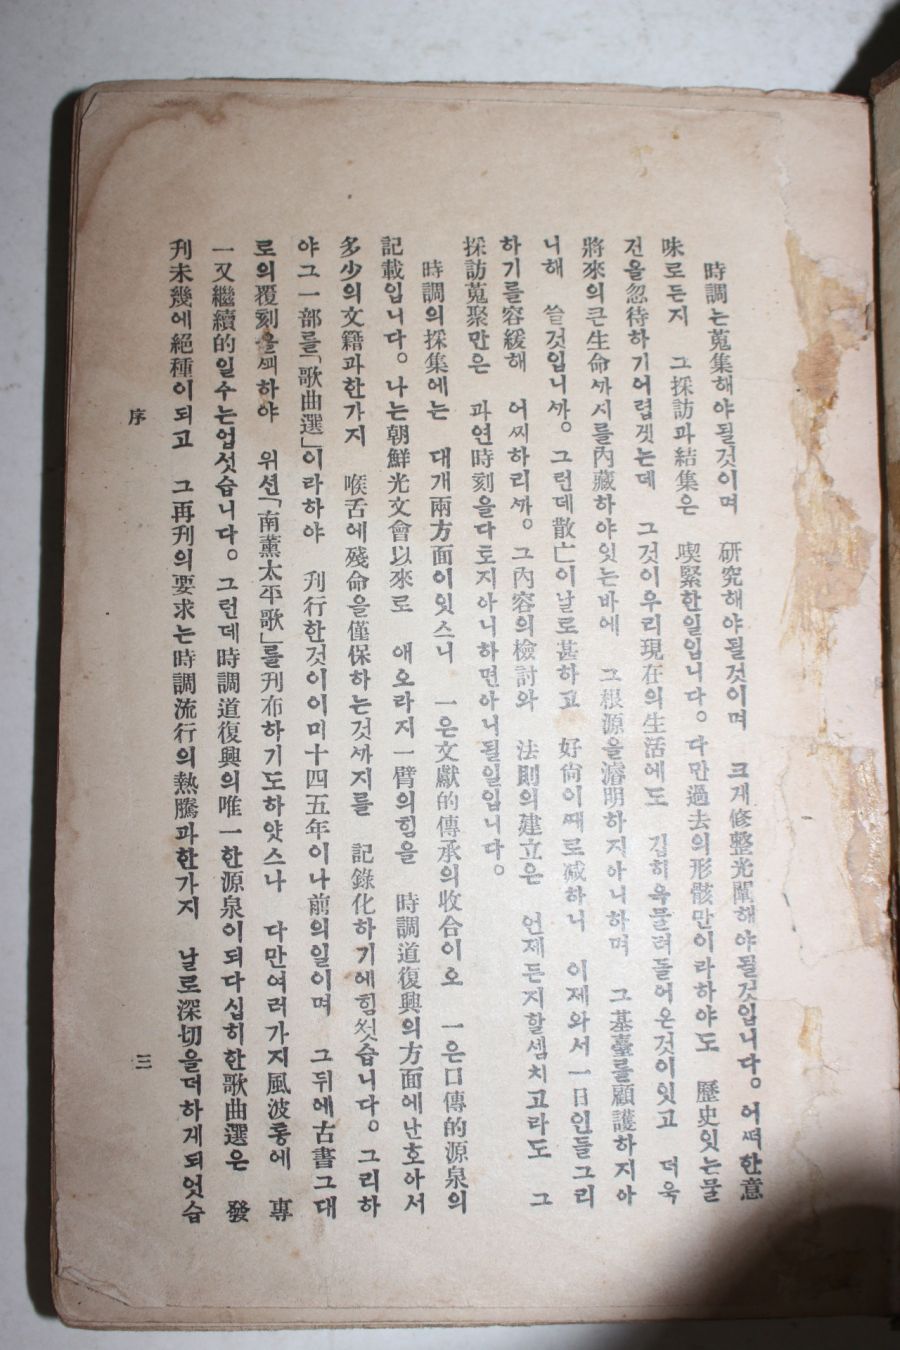 時調는蒐集해야될것이며 硏究해야될것이며 크게修整光闡해야될것입니다。어떠한意
味로든지 그採訪과結集은 喫緊한일입니다。다만過去의形骸만이라하야도 歷史잇는물
건을忽待하기어렵겟는데 그것이우리現在의生活에도 깁히욱물려들어온것이잇고 더욱
將來의큰生命까지를內藏하야잇는바에 그根源을濬明하지아니하며 그基臺를顧護하지아
니해 쓸것입니까。그런데散亡이날로甚하고 好尙이때로减하니 이제와서一日인들그리
하기를容緩해 어찌하리까。그內容의檢討와 法則의建立은 언제든지할셈치고라도 그
採訪蒐聚만은 과연時刻을다토지아니하면아니될일입니다。
時調의採集에는 대개兩方面이잇스니 一은文獻的傳承의收合이오 一은口傳的源泉의
記載입니다。나는朝鮮光文會以來로 애오라지一臂의힘을 時調道復興의方面에난호아서
多少의文籍과한가지 喉舌에殘命을僅保하는것까지를 記錄化하기에힘썻습니다。그리하
야그一部를「歌曲選」이라하야 刊行한것이이미十四五年이나前의일이며 그뒤에古書그대
로의覆刻을꾀하야 위선「南薰太平歌」를刊布하기도하얏스나 다만여러가지風波통에 專
一又繼續的일수는업섯습니다。그런데時調道復興의唯一한源泉이되다십히한歌曲選은 發
刊未幾에絕種이되고 그再刊의要求는時調流行의熱騰과한가지 날로深切을더하게되엇습
序
三